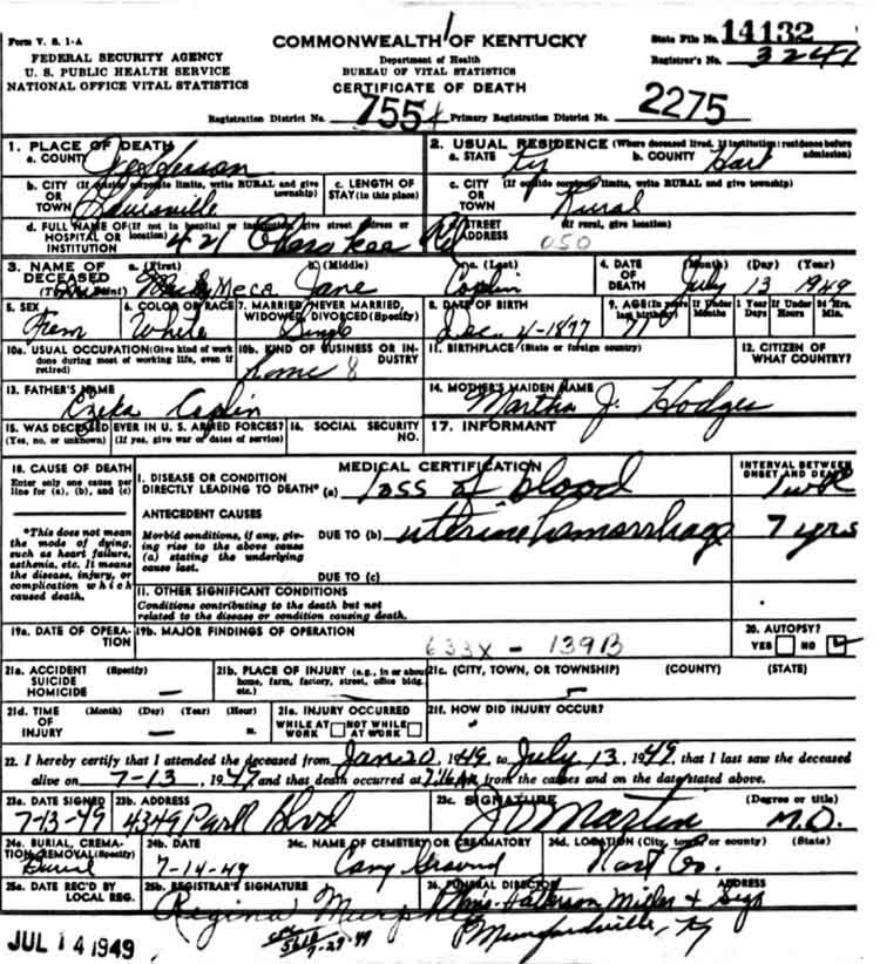 Form V. S. 1-A
FEDERAL SECURITY AGENCY
U. S. PUBLIC HEALTH SERVICE
NATIONAL OFFICE VITAL STATISTICS
COMMONWEALTH OF KENTUCKY
Department of Health
BUREAU OF VITAL STATISTICS
CERTIFICATE OF DEATH
State File No. 14132
Registrar's No. 3247
Registration District No. 755
Primary Registration District No. 2275
1. PLACE OF DEATH
a. COUNTY Jefferson
2. USUAL RESIDENCE (Where deceased lived. If institution: residence before admission)
a. STATE Ky b. COUNTY Hart
b. CITY (If outside corporate limits, write RURAL and give township) OR TOWN Louisville
c. LENGTH OF STAY (in this place)
c. CITY (If outside corporate limits, write RURAL and give township) OR TOWN Rural
d. FULL NAME OF (If not in hospital or institution, give street address or location) HOSPITAL OR INSTITUTION 421 Cherokee Rd
STREET ADDRESS (If rural, give location) 050
3. NAME OF DECEASED a. (First) Meca b. (Middle) Jane c. (Last) Coplin
4. DATE OF DEATH (Month) (Day) (Year) July 13 1949
5. SEX Fem
6. COLOR OR RACE White
7. MARRIED, NEVER MARRIED, WIDOWED, DIVORCED (Specify) Single
8. DATE OF BIRTH Dec. 4-1877
9. AGE (In years last birthday) 71 If Under 1 Year Months Days If Under 24 Hrs. Hours Min.
10a. USUAL OCCUPATION (Give kind of work done during most of working life, even if retired)
10b. KIND OF BUSINESS OR INDUSTRY home 8
11. BIRTHPLACE (State or foreign country)
12. CITIZEN OF WHAT COUNTRY?
13. FATHER'S NAME Coplin
14. MOTHER'S MAIDEN NAME Martha J. Hodges
15. WAS DECEASED EVER IN U. S. ARMED FORCES? (Yes, no, or unknown) (If yes, give war or dates of service)
16. SOCIAL SECURITY NO.
17. INFORMANT
18. CAUSE OF DEATH
Enter only one cause per line for (a), (b), and (c)
MEDICAL CERTIFICATION
I. DISEASE OR CONDITION DIRECTLY LEADING TO DEATH* (a) loss of blood
INTERVAL BETWEEN ONSET AND DEATH 1 wk
*This does not mean the mode of dying, such as heart failure, asthenia, etc. It means the disease, injury, or complication which caused death.
ANTECEDENT CAUSES
Morbid conditions, if any, giving rise to the above cause (a) stating the underlying cause last.
DUE TO (b) uterine hemorrhage 7 yrs
DUE TO (c)
II. OTHER SIGNIFICANT CONDITIONS
Conditions contributing to the death but not related to the disease or condition causing death.
19a. DATE OF OPERATION
19b. MAJOR FINDINGS OF OPERATION
633X - 139B
20. AUTOPSY? YES NO
21a. ACCIDENT SUICIDE HOMICIDE (Specify) —
21b. PLACE OF INJURY (e.g., in or about home, farm, factory, street, office bldg. etc.)
21c. (CITY, TOWN, OR TOWNSHIP) (COUNTY) (STATE)
21d. TIME OF INJURY (Month) (Day) (Year) (Hour) — m.
21e. INJURY OCCURRED WHILE AT WORK NOT WHILE AT WORK
21f. HOW DID INJURY OCCUR?
22. I hereby certify that I attended the deceased from Jan 20, 1949, to July 13, 1949, that I last saw the deceased
alive on 7-13, 1949 and that death occurred at from the causes and on the date stated above.
23a. DATE SIGNED 7-13-49
23b. ADDRESS 4349 Park Blvd
23c. SIGNATURE J D Martin (Degree or title) M.D.
24a. BURIAL, CREMATION, REMOVAL (Specify) Burial
24b. DATE 7-14-49
24c. NAME OF CEMETERY OR CREMATORY
24d. LOCATION (City, town or county) (State) Hart Co.
25a. DATE REC'D BY LOCAL REG.
JUL 14 1949
25b. REGISTRAR'S SIGNATURE Regina Murphy
7-29-49
26. FUNERAL DIRECTOR ADDRESS
Munfordville, Ky